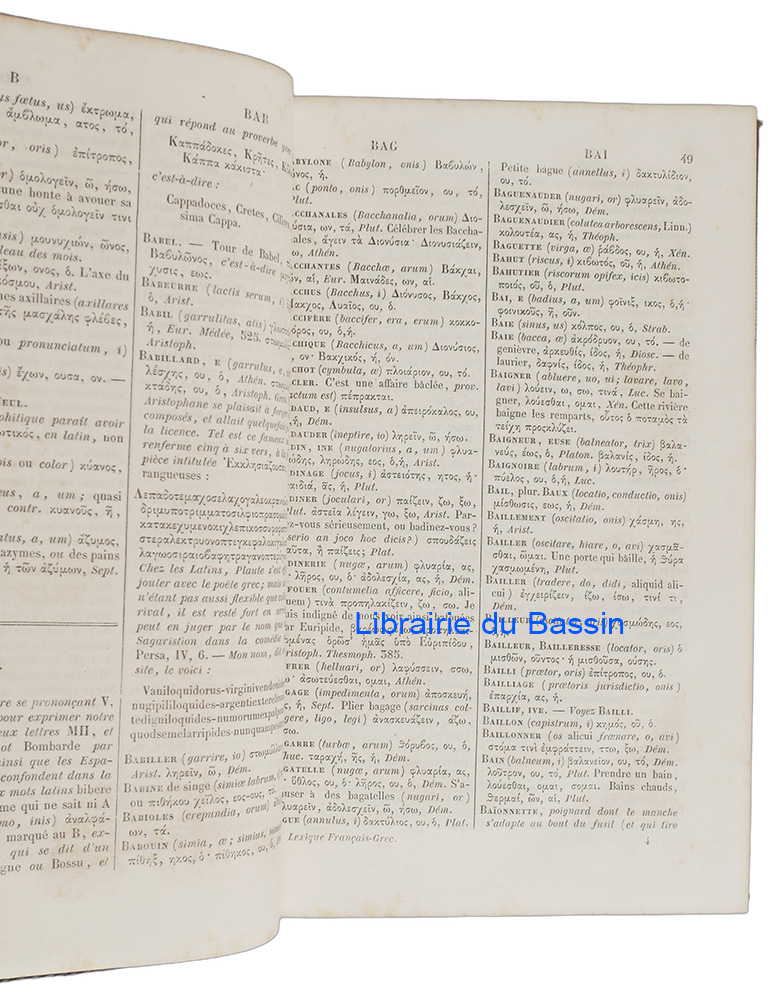 B
us fœtus, us) ἔκτρωμα,
ἄμβλωμα, ατος, τό,
or, oris) ἐπίτροπος,
or) ὁμολογεῖν, ῶ, ήσω,
une honte à avouer sa
σθαι οὐχ ὁμολογεῖν τινι
sis) μουνυχιών, ῶνος,
leau des mois.
ἄξων, ονος, ὁ. L'axe du
κόσμου, Arist.
nes axillaires (axillares
τῆς μασχάλης φλέβες,
ou pronunciatum, i)
is) ἔχων, ουσα, ον. —
EUL.
philique paraît avoir
ωτικός, en latin, non
ois ou color) κύανος,
eus, a, um; quasi
contr. κυανοῦς, ῆ,
tus, a, um) ἄζυμος,
azymes, ou des pains
ἡ τῶν ἀζύμων, Sept.
re se prononçant V.
pour exprimer notre
eux lettres MII, et
ot Bombarde par
ainsi que les Espa-
confondent dans la
x mots latins bibere
me qui ne sait ni A
mo, inis) ἀναλφά-
marqué au B, ex-
qui se dit d'un
gne ou Bossu, et
BAB
qui répond au proverbe grec
Καππάδοκες, Κρῆτες,
Κάππα κάκιστα
c'est-à-dire :
Cappadoces, Cretes,
sima Cappa.
BABEL. — Tour de Babel,
Βαβυλῶνος, c'est-à-dire
χυσις, εως.
BABEURRE (lactis serum, i)
ὁ, Arist.
BABIL (garrulitas, atis)
ή, Eur. Médée, 525.
Aristoph.
BABILLARD, E (garrulus, a,
λέσχης, ου, ὁ, Athén.
κτάδης, ου, ὁ, Aristoph.
Aristophane se plaisait à
composés, et allait quelquefois
la licence. Tel est ce fameux
renferme cinq à six vers, à la
pièce intitulée Ἐκκλησιάζουσαι
rangueuses :
Λεπαδοτεμαχοσελαχογαλεοκρανιο
δριμυποτριμματοσιλφιοπρασο
κατακεχυμενοκιχλεπικοσσυφο
στεραλεκτρυονοπτεγκεφαλο
λαγωοσιραιοβαφητραγανοπτε
Chez les Latins, Plaute s'est
jouter avec le poëte grec; mais
n'étant pas aussi flexible que
rival, il est resté fort en
peut en juger par le nom que
Sagaristion dans la comédie
Persa, IV, 6. — Mon nom, dit
site, le voici :
Vaniloquidorus-virginivendonides
nugipililoquides-argentiexterebro
tedigniloquides-nummorumexpalpo
quodsemelarripides-nunquamposte
BABILLER (garrire, io)
Arist. ληρεῖν, ῶ, Dém.
BABINE de singe (simiæ labrum, i)
ου πιθήκου χεῖλος, εος-ους, τό.
BABIOLES (crepundia, orum)
ων, τά.
BABOUIN (simia, æ; simius,
πίθηξ, ηκος, ὁ· πίθηκος, ου, ὁ,
BAG
ABYLONE (Babylon, onis) Βαβυλών,
ῶνος, ἡ.
AC (ponto, onis) πορθμεῖον, ου, τό,
Plut.
ACCHANALES (Bacchanalia, orum) Διο-
νύσια, ων, τά, Plut. Célébrer les Baccha-
ales, ἄγειν τὰ Διονύσια· Διονυσιάζειν,
ω, Athén.
ACCHANTES (Bacchæ, arum) Βάκχαι,
ῶν, αἱ, Eur. Μαινάδες, ων, αἱ.
ACCHUS (Bacchus, i) Διόνυσος, Βάκχος,
Ἴακχος, Λυαῖος, ου, ὁ.
CCIFÈRE (baccifer, era, erum) κοκκο-
φόρος, ου, ὁ,ἡ.
CHIQUE (Bacchicus, a, um) Διονύσιος,
, ον· Βακχικός, ή, όν.
CHOT (cymbula, æ) πλοιάριον, ου, τό.
CLER. C'est une affaire bâclée, prov.
actum est) πέπρακται.
DAUD, E (insulsus, a) ἀπειρόκαλος, ου,
ὁ,ἡ, Dém.
DAUDER (ineptire, io) ληρεῖν, ῶ, ήσω.
DIN, INE (nugatorius, a, um) φλυα-
ρώδης, ληρώδης, εος, ὁ,ἡ, Arist.
DINAGE (jocus, i) ἀστειότης, ητος, ἡ·
παιδιά, ᾶς, ἡ, Plut.
DINER (joculari, or) παίζειν, ζω, ξω,
Plut. ἀστεῖα λέγειν, γω, ξω, Arist. Par-
ez-vous sérieusement, ou badinez-vous?
serio an joco hoc dicis?) σπουδάζεις
αῦτα, ἢ παίζεις; Plat.
DINERIE (nugæ, arum) φλυαρία, ας,
· λῆρος, ου, ὁ· ἀδολεσχία, ας, ἡ, Dém.
FOUER (contumelia afficere, ficio, ali-
uem) τινὰ προπηλακίζειν, ζω, σω. Je
ais indigné de nous voir ainsi bafouées
ar Euripide,
ομένας ὁρῶσ' ἡμᾶς ὑπὸ Εὐριπίδου,
ristoph. Thesmoph. 385.
FRER (helluari, or) λαφύσσειν, σσω,
ο· ἀσωτεύεσθαι, ομαι, Athén.
GAGE (impedimenta, orum) ἀποσκευή,
ς, ἡ, Sept. Plier bagage (sarcinas col-
gere, ligo, legi) ἀνασκευάζειν, άζω,
σω.
GARRE (turbæ, arum) θόρυβος, ου, ὁ,
huc. ταραχή, ῆς, ἡ, Dém.
GATELLE (nugæ, arum) φλυαρία, ας,
· ὕθλος, ου, ὁ· λῆρος, ου, ὁ, Dém. S'a-
user à des bagatelles (nugari, or)
λυαρεῖν, ἀδολεσχεῖν, ῶ, ήσω, Dém.
GUE (annulus, i) δακτύλιος, ου, ὁ, Plat.
Lexique Français-Grec.
BAI
49
Petite bague (annellus, i) δακτυλίδιον,
ου, τό.
BAGUENAUDER (nugari, or) φλυαρεῖν, ἀδο-
λεσχεῖν, ῶ, ήσω, Dém.
BAGUENAUDIER (colutea arborescens, Linn.)
κολουτέα, ας, ἡ, Théoph.
BAGUETTE (virga, æ) ῥάβδος, ου, ἡ, Xén.
BAHUT (riscus, i) κιβωτός, οῦ, ἡ, Athén.
BAHUTIER (riscorum opifex, icis) κιβωτο-
ποιός, οῦ, ὁ, Plut.
BAI, E (badius, a, um) φοῖνιξ, ικος, ὁ,ἡ·
φοινικοῦς, ῆ, οῦν.
BAIE (sinus, us) κόλπος, ου, ὁ, Strab.
BAIE (bacca, æ) ἀκρόδρυον, ου, τό. — de
genièvre, ἀρκευθίς, ίδος, ἡ, Diosc. — de
laurier, δαφνίς, ίδος, ἡ, Théophr.
BAIGNER (abluere, uo, ui; lavare, lavo,
lavi) λούειν, ω, σω, τινά, Luc. Se bai-
gner, λούεσθαι, ομαι, Xén. Cette rivière
baigne les remparts, οὗτος ὁ ποταμὸς τὰ
τείχη προσκλύζει.
BAIGNEUR, EUSE (balneator, trix) βαλα-
νεύς, έως, ὁ, Platon. βαλανίς, ίδος, ἡ.
BAIGNOIRE (labrum, i) λουτήρ, ῆρος, ὁ·
πύελος, ου, ὁ,ἡ, Luc.
BAIL, plur. BAUX (locatio, conductio, onis)
μίσθωσις, εως, ἡ, Dém.
BAILLEMENT (oscitatio, onis) χάσμη, ης,
ἡ, Arist.
BAILLER (oscitare, hiare, o, avi) χασμᾶ-
σθαι, ῶμαι. Une porte qui bâille, ἡ θύρα
χασμωμένη, Plut.
BAILLER (tradere, do, didi, aliquid ali-
cui) ἐγχειρίζειν, ίζω, ίσω, τινί τι,
Dém.
BAILLEUR χασμώδης, εος,
ὁ,ἡ.
BAILLEUR, BAILLERESSE (locator, oris) ὁ
μισθῶν, οῦντος· ἡ μισθοῦσα, ούσης.
BAILLI (prætor, oris) ἐπίτροπος, ου, ὁ.
BAILLIAGE (prætoris jurisdictio, onis)
ἐπαρχία, ας, ἡ.
BAILLIF, IVE. — Voyez BAILLI.
BAILLON (capistrum, i) κημός, οῦ, ὁ.
BAILLONNER (os alicui frænare, o, avi)
στόμα τινὶ ἐμφράττειν, ττω, ξω, Dém.
BAIN (balneum, i) βαλανεῖον, ου, τό, Dém.
λοῦτρον, ου, τό, Plut. Prendre un bain,
λούεσθαι, ομαι, σομαι. Bains chauds,
θερμαί, ῶν, αἱ, Plut.
BAÏONNETTE, poignard dont le manche
s'adapte au bout du fusil (et qui tire
4
Librairie du Bassin